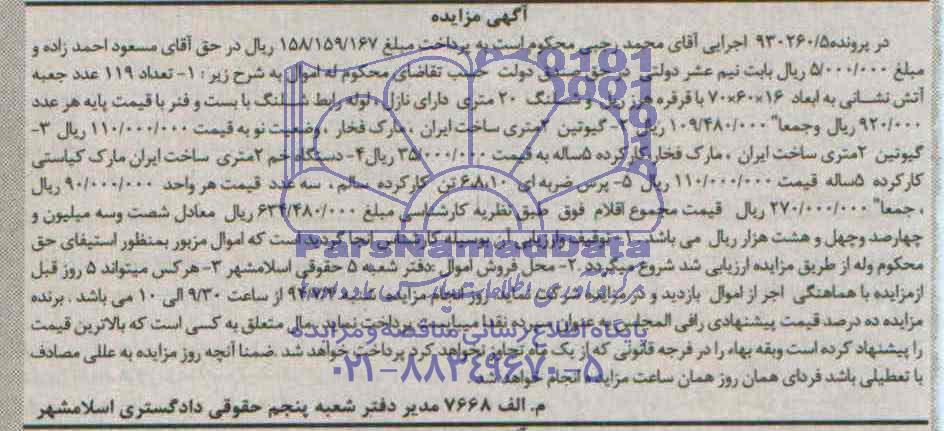 آگهی مزایده
در پرونده ۹۳۰۲۶۰/۵ اجرایی آقای محمد رجبی محکوم است به پرداخت مبلغ ۱۵۸/۱۵۹/۱۶۷ ریال در حق آقای مسعود احمد زاده و
مبلغ ۵/۰۰۰/۰۰۰ ریال بابت نیم عشر دولتی در حق صندوق دولت حسب تقاضای محکوم له اموال به شرح زیر : ۱- تعداد ۱۱۹ عدد جعبه
آتش نشانی به ابعاد ۱۶×۶۰×۷۰ با قرقره هرز ریل و شیلنگ ۲۰ متری دارای نازل ، لوله رابط شیلنگ با بست و فنر با قیمت پایه هر عدد
۹۲۰/۰۰۰ ریال وجمعا" ۱۰۹/۴۸۰/۰۰۰ ریال ۲- گیوتین ۲متری ساخت ایران ، مارک فخار ، وضعیت نو به قیمت ۱۱۰/۰۰۰/۰۰۰ ریال ۳-
گیوتین ۲متری ساخت ایران ، مارک فخار کارکرده ۵ساله به قیمت ۳۵/۰۰۰/۰۰۰ ریال ۴- دستگاه خم ۲متری ساخت ایران مارک کیاستی
کارکرده ۵ساله قیمت ۱۱۰/۰۰۰/۰۰۰ ریال ۵- پرس ضربه ای ۶،۸،۱۰ تن کارکرده سالم ، سه عدد قیمت هر واحد ۹۰/۰۰۰/۰۰۰ ریال
، جمعا" ۲۷۰/۰۰۰/۰۰۰ ریال قیمت مجموع اقلام فوق طبق نظریه کارشناسی مبلغ ۶۳۴/۴۸۰/۰۰۰ ریال معادل شصت وسه میلیون و
چهارصد وچهل و هشت هزار ریال می باشد . ۱- توقیف وارزیابی آن بوسیله کارشناس انجا گردید است که اموال مزبور بمنظور استیفای حق
محکوم وله از طریق مزایده ارزیابی شد شروع میگردد .۲- محل فروش اموال :دفتر شعبه ۵ حقوقی اسلامشهر ۳- هرکس میتواند ۵ روز قبل
ازمزایده با هماهنگی اجر از اموال بازدید و در مزایده شرکت نماید روز انجام مزایده ۹۴/۷/۴ از ساعت ۹/۳۰ الی ۱۰ می باشد . برنده
مزایده ده درصد قیمت پیشنهادی رافی المجلس به عنوان سپرده نقدا میبایست پرداخت نماید مال متعلق به کسی است که بالاترین قیمت
را پیشنهاد کرده است وبقه بهاء را در فرجه قانونی که از یک ماه تجاوز نخواهد کرد پرداخت خواهد شد .ضمنا آنچه روز مزایده به عللی مصادف
با تعطیلی باشد فردای همان روز همان ساعت مزایده انجام خواهد شد
م. الف ۷۶۶۸ مدیر دفتر شعبه پنجم حقوقی دادگستری اسلامشهر
ParsNamadData
پایگاه اطلاع رسانی مناقصه و مزایده
۰۲۱-۸۸۳۴۹۶۷۰-۵